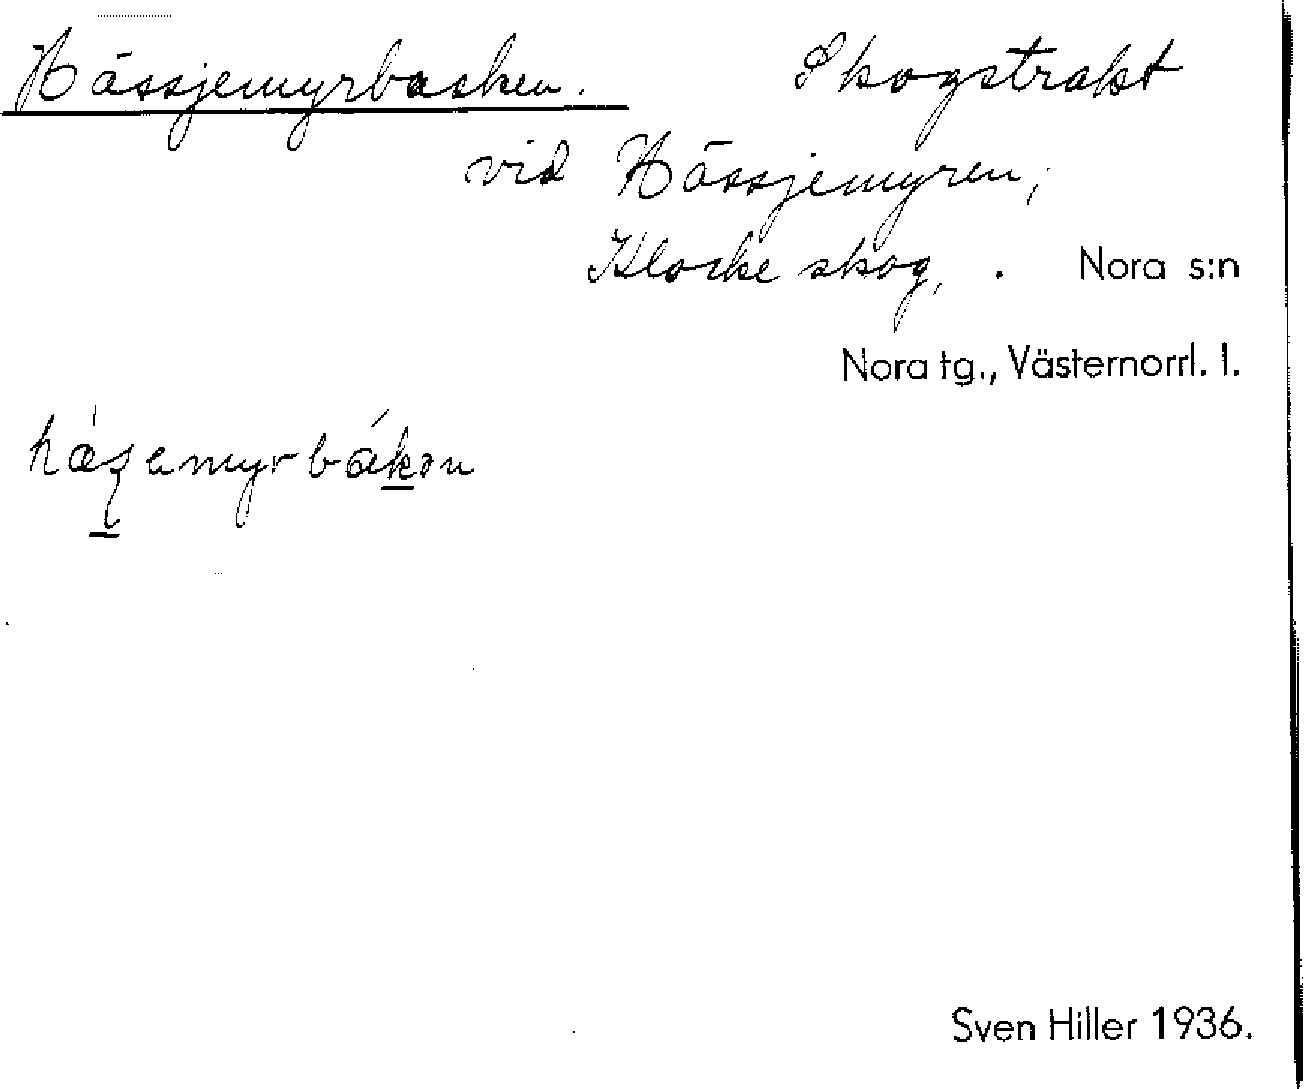 Hässjemyrbacken. Skogstrakt
vid Hässjemyren,
Klocke skog, . Nora s:n
Nora tg., Västernorrl. l.
Sven Hiller 1936.